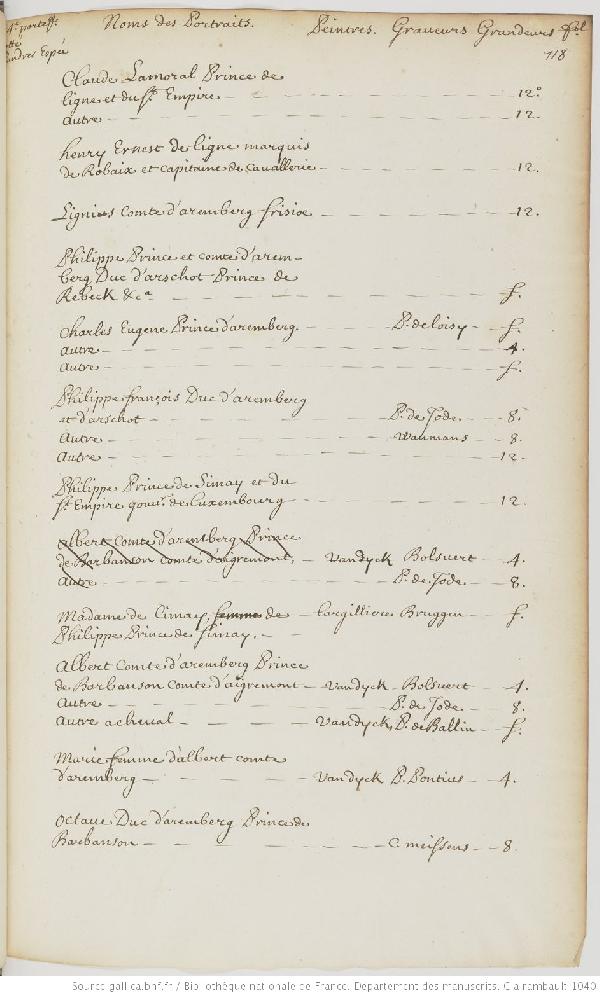 4e. portef.
Noms des Portraits. Peintres. Graveurs Grandeurs fol
718
Claude Lamoral Prince de
ligne et du St. Empire — 12.°
autre — 12.
henry Ernest de ligne marquis
de Robaix et capitaine de Cavallerie — 12.
Lignius Comte d'aremberg frisiae — 12.
Philippe Prince et comte d'arem-
berg, Duc d'arschot Prince de
Rebeck &ca — f.
Charles Eugene Prince d'aremberg — P. de loisy — f.
autre — 4.
autre — f.
Philippe françois Duc d'aremberg
et d'arschot — P. de Jode — 8.
Autre — Waumans — 8.
autre — 12.
Philippe Prince de Simay et du
St. Empire gouvr. de Luxembourg — 12.
albert Comte d'aremberg Prince
de Barbanson comte d'aigremont, — Vandyck Bolsvert — 4.
autre — P. de Jode — 8.
Madame de Cimay, femme de — Largilliere Bruggen — f.
Philippe Prince de Simay. —
Albert Comte d'aremberg Prince
de Barbanson Comte d'aigremont — Vandyck — Bolsvert — 4.
autre — P. de Jode — 8.
autre a cheval — Vandyck, P. de Ballin — f.
Marie femme d'albert comte
d'aremberg — Vandyck P. Pontius — 4.
Octave Duc d'aremberg Prince de
Barbanson — C. meissens — 8.
Source gallica.bnf.fr / Bibliothèque nationale de France. Département des manuscrits. Clairambault 1040